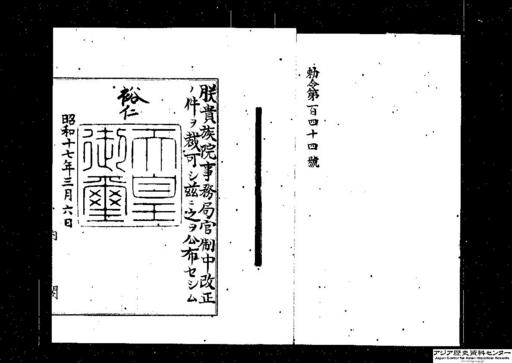 勅令第百四十四號
朕貴族院事務局官制中改正
ノ件ヲ裁可シ茲ニ之ヲ公布セシム
裕仁
天皇
御璽
昭和十七年三月六日
内閣
アジア歴史資料センター
Japan Center for Asian Historical Records